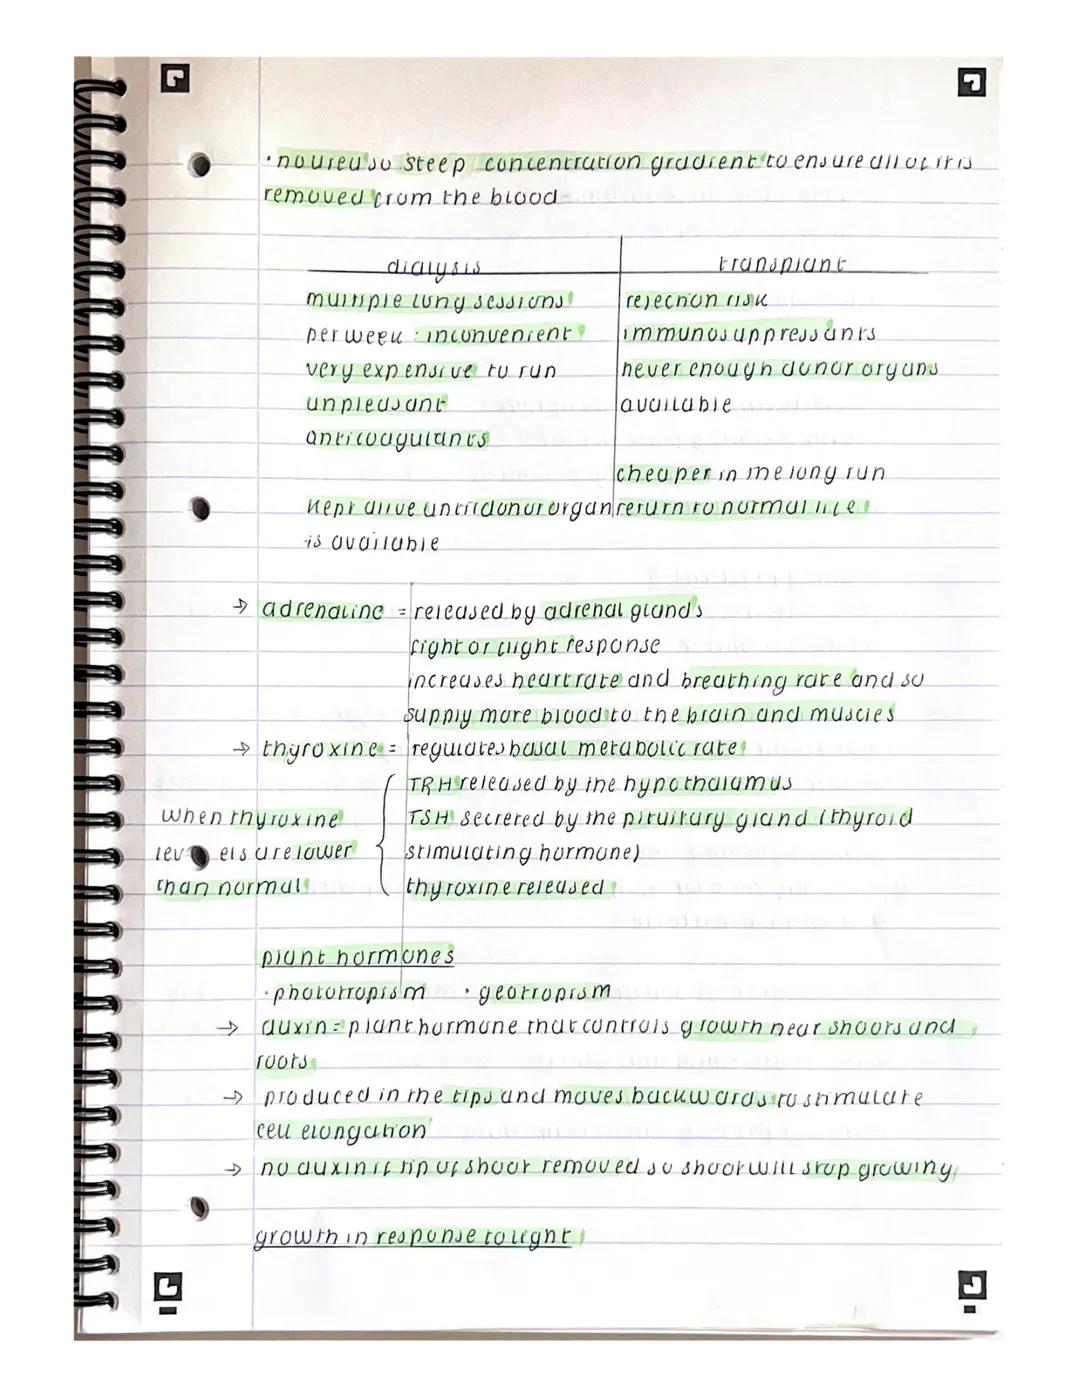 · no urea so steep concentration gradient to ensure all of it is
removed from the blood
dialysis transplant
multiple long sessions rejection risk
per week : inconvenient immunosuppressants
very expensive to run never enough donor organs
unpleasant available
anticoagulants
cheaper in the long run
kept alive until donor organ return to normal life
is available
→ adrenaline = released by adrenal glands
fight or flight response
increases heart rate and breathing rate and so
supply more blood to the brain and muscles
→ thyroxine = regulates basal metabolic rate
TRH released by the hypothalamus
when thyroxine TSH secreted by the pituitary gland (thyroid
levels are lower stimulating hormone)
than normal thyroxine released
plant hormones
· phototropism · geotropism
→ auxin = plant hormone that controls growth near shoots and
roots
→ produced in the tips and moves backwards to stimulate
cell elongation
→ no auxin if tip of shoot removed so shoot will stop growing
growth in response to light